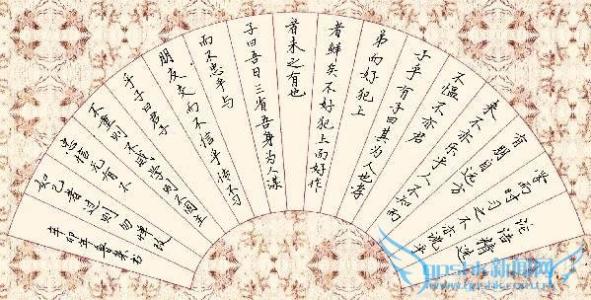 论语精选
学而时习之不亦说乎
有朋自远方
来不亦乐乎人不知而
不愠不亦君
子乎有子曰其为人也孝
弟而好犯上
者鲜矣不好犯上而好作
者未之有也
子曰吾日三省吾身为人谋
而不忠乎与
朋友交而不信乎传不习
乎子曰君子
不重则不威学则不固主
忠信无有不
如己者过则勿惮改
辛卯年
新闻网